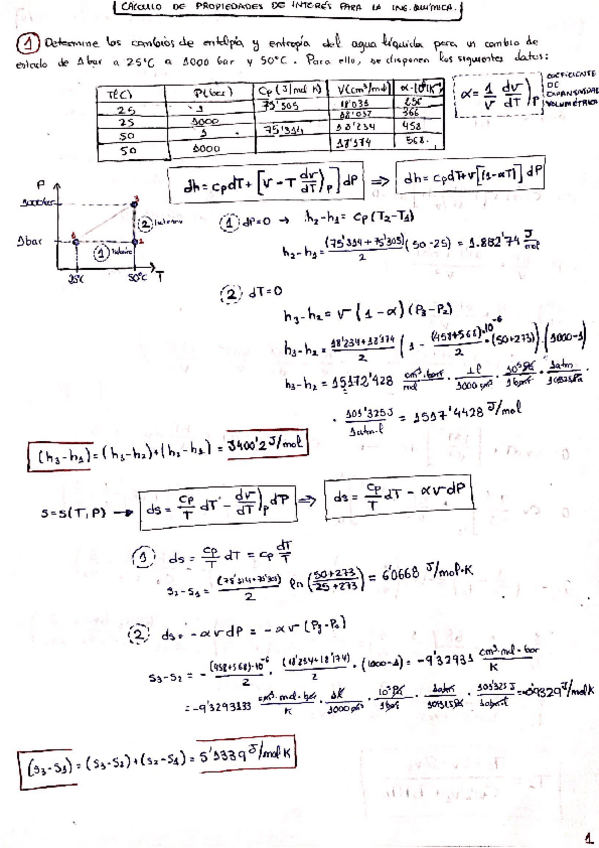 CÁLCULO DE PROPIEDADES DE INTERÉS PARA LA ING. QUÍMICA.
① Determine los cambios de entalpía y entropía del agua líquida para un cambio de
estado de 1 bar a 25°C a 1000 bar y 50°C. Para ello, se disponen los siguientes datos:
T(°C) P(bar) Cp (J/mol K) V(cm³/mol) α·10⁶(K⁻¹)
25 1 75'305 18'071 256
25 1000 366
50 1 75'314 18'234 458
50 1000 18'174 568
α = 1/V dV/dT)P
COEFICIENTE
DE
EXPANSIVIDAD
VOLUMÉTRICA
dh = cp dT + [V - T dv/dT)P] dP ⟹ dh = cp dT + v[(1-αT)] dP
P
1000 bar
1 bar
25°C 50°C T
① dP=0 → h₂-h₁ = cp (T₂-T₁)
h₂-h₁ = (75'314 + 75'305)/2 (50-25) = 1.882'74 J/mol
② dT=0
h₃-h₂ = v (1-α) (P₃-P₂)
h₃-h₂ = 18'234+18'174/2 (1 - (458+568)·10⁻⁶/2 · (50+273)) · (1000-1)
h₃-h₂ = 15172'428 cm³·bar/mol · 1L/1000 cm³ · 10⁵Pa/1bar · 1atm/101325Pa
· 101'325J/1atm·L = 1517'4428 J/mol
(h₃-h₁) = (h₃-h₂)+(h₂-h₁) = 3400'2 J/mol
S=S(T,P) → ds = cp/T dT - dv/dT)P dP ⟹ ds = cp/T dT - αv dP
① ds = cp/T dT = cp dT/T
s₂-s₁ = (75'314+75'305)/2 ln (50+273/25+273) = 6'0668 J/mol·K
② ds = -αv dP = -αv (P₃-P₂)
s₃-s₂ = -(458+568)·10⁻⁶/2 · (18'234+18'174)/2 · (1000-1) = -9'32931 cm³·mol·bar/K
= -9'3293133 cm³·mol·bar/K · 1L/1000 cm³ · 10⁵Pa/1bar · 1atm/101325Pa · 101'325J/1atm·L = -0'9329 J/mol K
(s₃-s₁) = (s₃-s₂)+(s₂-s₁) = 5'1339 J/mol K
1